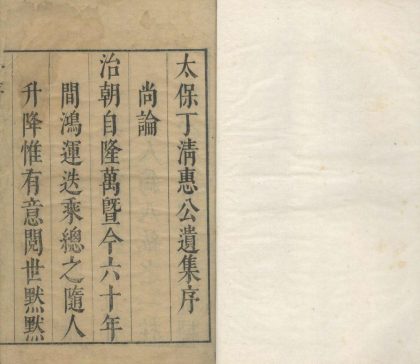 太保丁清惠公遺集序
尚論
治朝自隆萬暨今六十年
間鴻運迭乘總之隨人
升降惟有意閱世黙黙